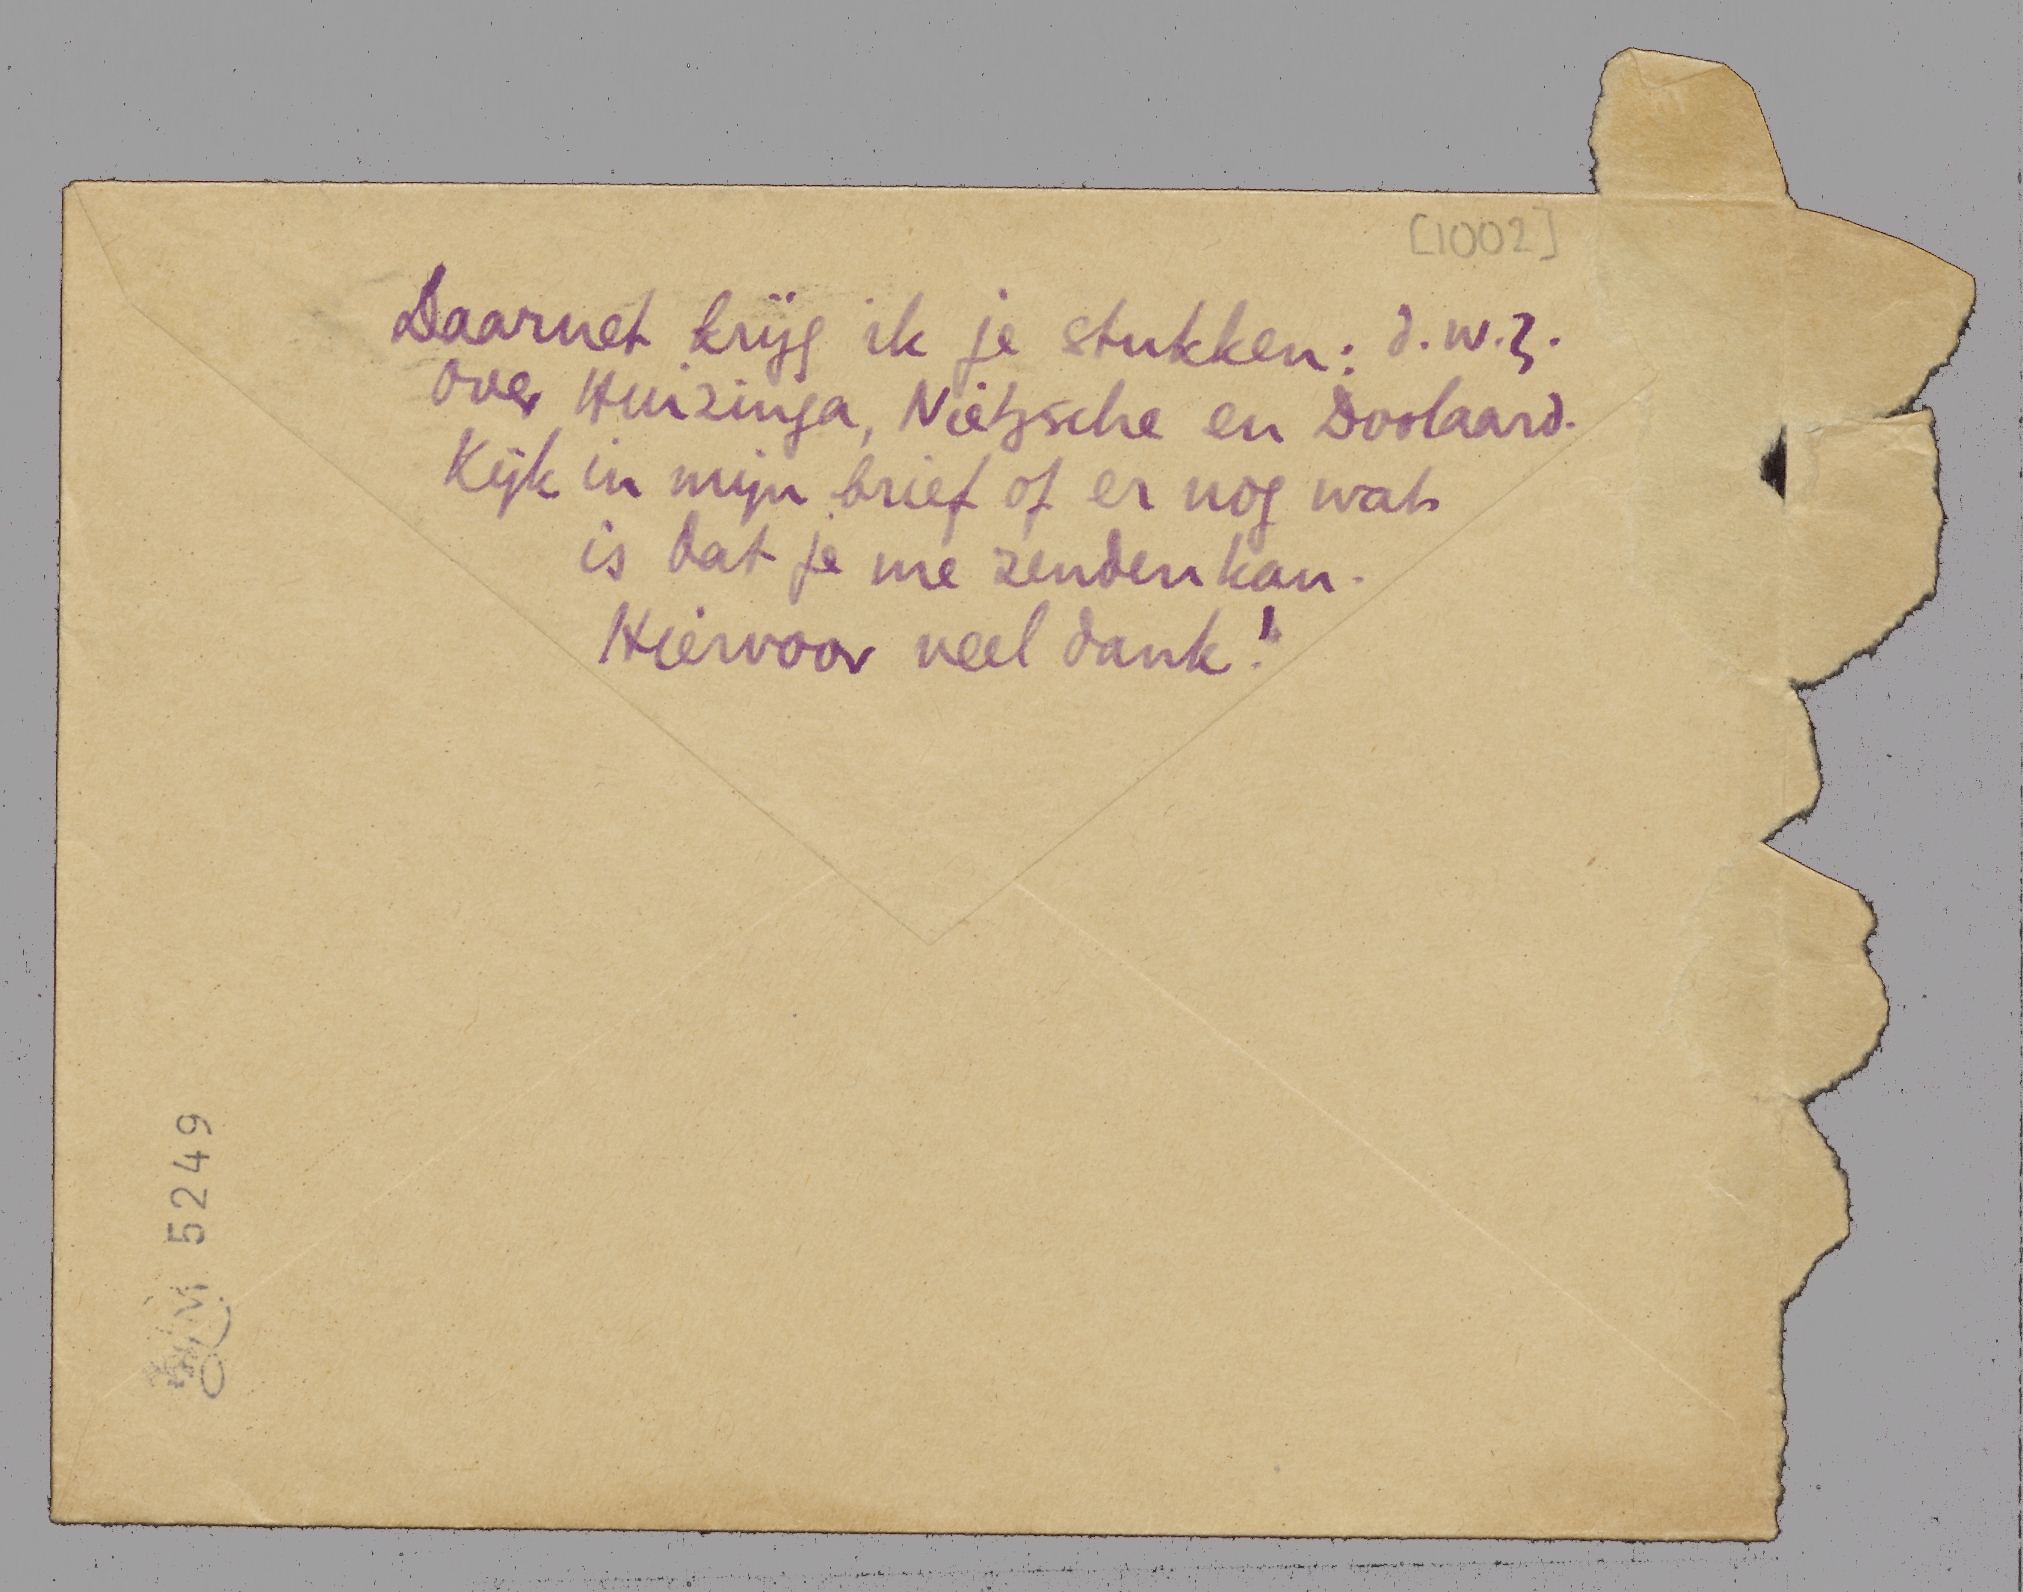 [1002]
Daarnet krijg ik je stukken: d.w.z.
over Huizinga, Nietzsche en Doolaard.
Kijk in mijn brief of er nog wat
is dat je me zenden kan.
Hiervoor veel dank!
M 5249